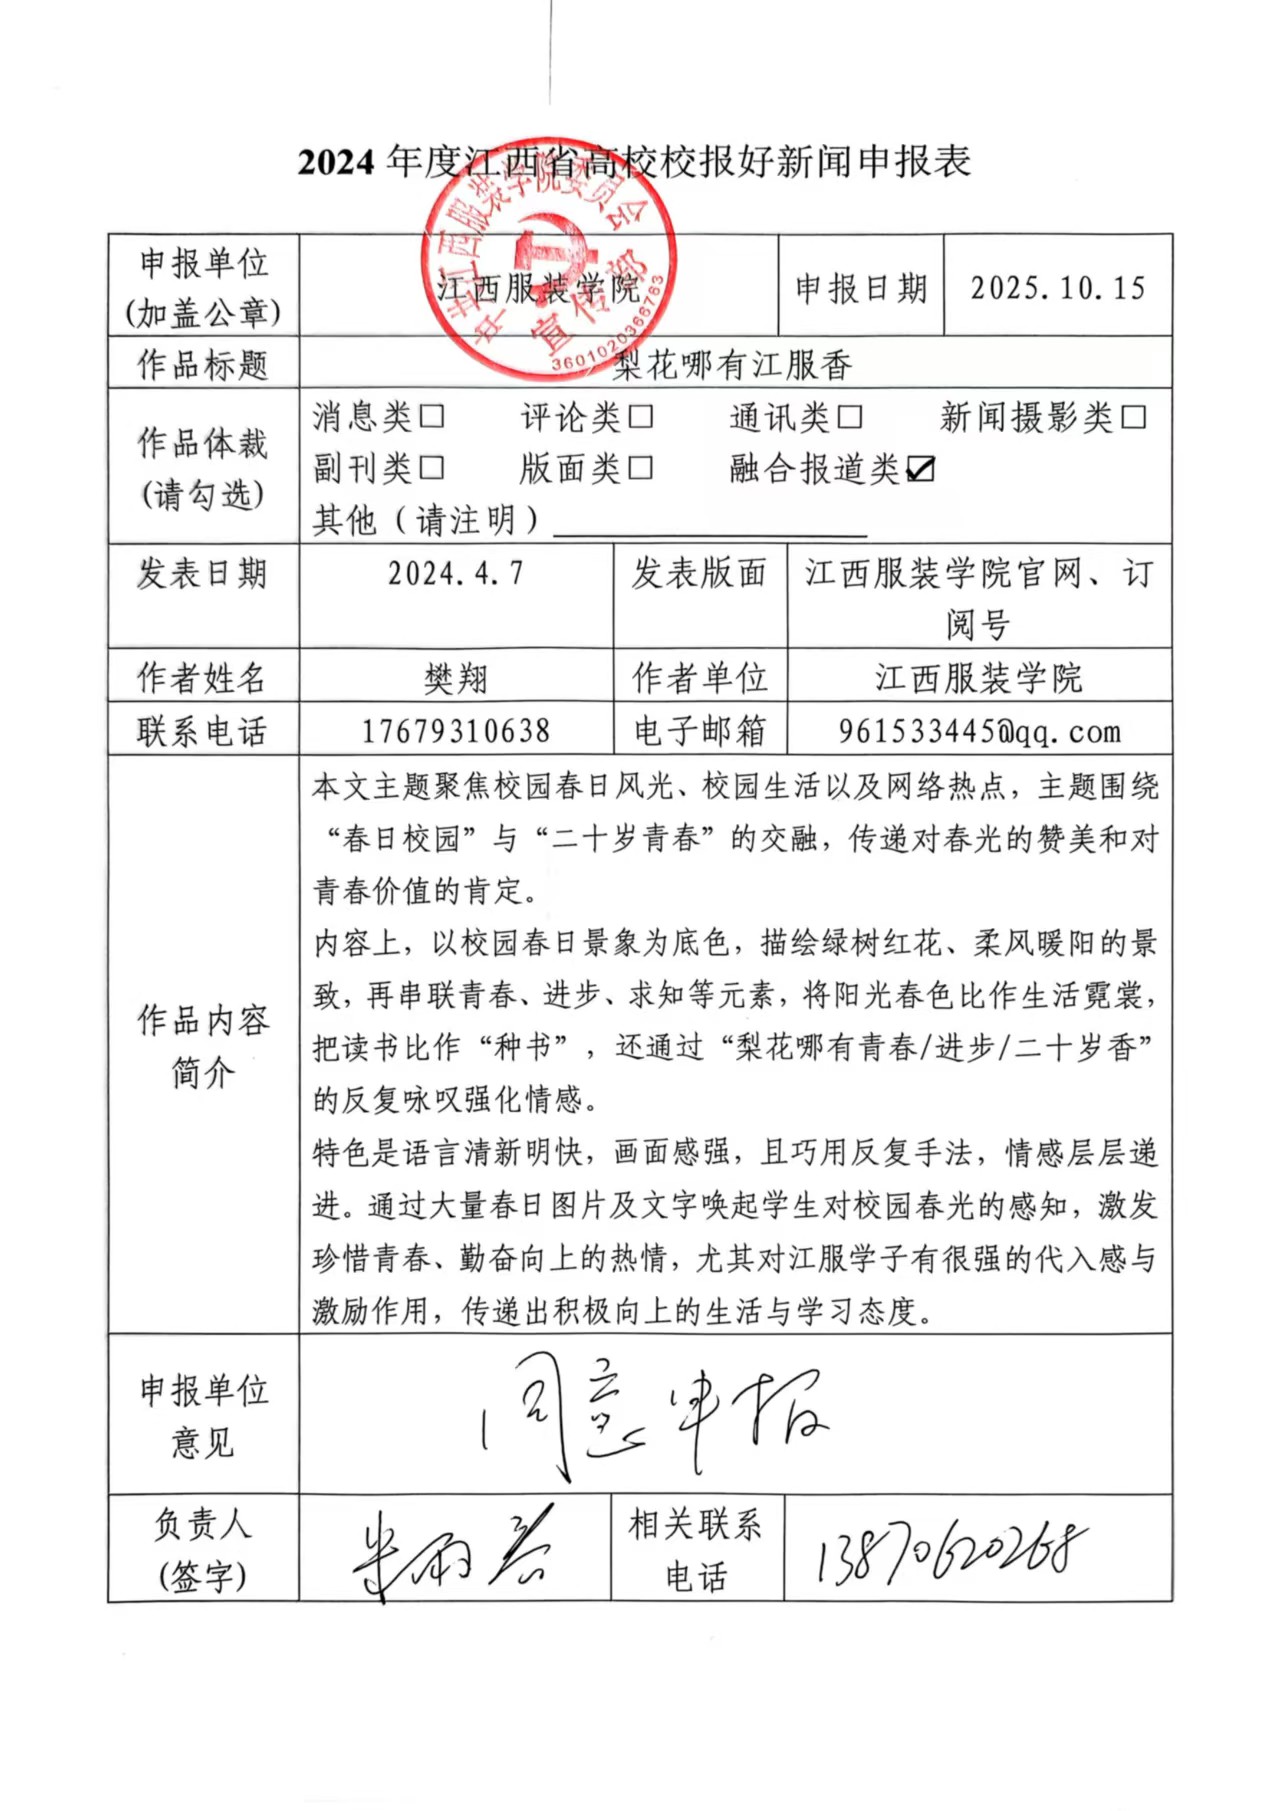 2024 年度江西省高校校报好新闻申报表
中共江西服装学院委员会
宣传部
3601020368763
申报单位
(加盖公章)
江西服装学院
申报日期
2025.10.15
作品标题
梨花哪有江服香
作品体裁
(请勾选)
消息类□ 评论类□ 通讯类□ 新闻摄影类□
副刊类□ 版面类□ 融合报道类☑
其他（请注明）
发表日期
2024.4.7
发表版面
江西服装学院官网、订
阅号
作者姓名
樊翔
作者单位
江西服装学院
联系电话
17679310638
电子邮箱
961533445@qq.com
作品内容
简介
本文主题聚焦校园春日风光、校园生活以及网络热点，主题围绕
“春日校园”与“二十岁青春”的交融，传递对春光的赞美和对
青春价值的肯定。
内容上，以校园春日景象为底色，描绘绿树红花、柔风暖阳的景
致，再串联青春、进步、求知等元素，将阳光春色比作生活霓裳，
把读书比作“种书”，还通过“梨花哪有青春/进步/二十岁香”
的反复咏叹强化情感。
特色是语言清新明快，画面感强，且巧用反复手法，情感层层递
进。通过大量春日图片及文字唤起学生对校园春光的感知，激发
珍惜青春、勤奋向上的热情，尤其对江服学子有很强的代入感与
激励作用，传递出积极向上的生活与学习态度。
申报单位
意见
同意申报
负责人
(签字)
相关联系
电话
13870620268